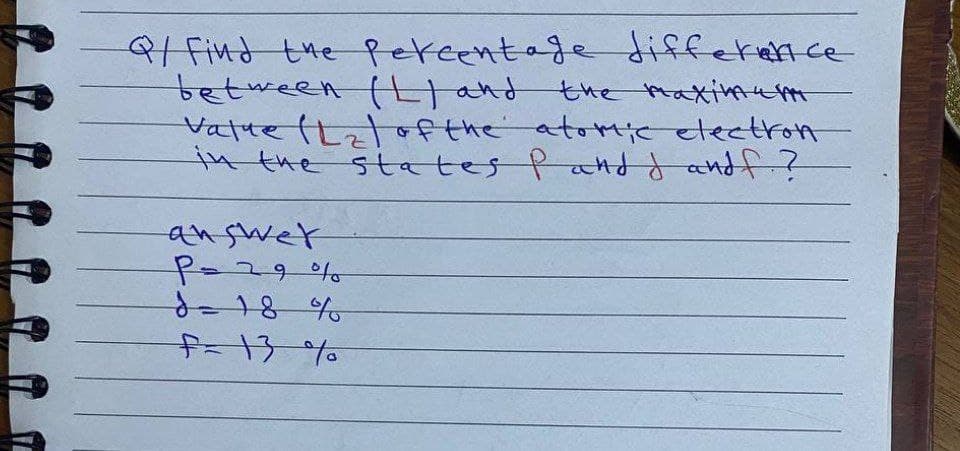 Q/ Find the Percentage difference
between (L) and the maximum
Value (Lz) of the atomic electron
in the states P and d and f.?
answer
P = 29 %
d = 18 %
f = 13 %